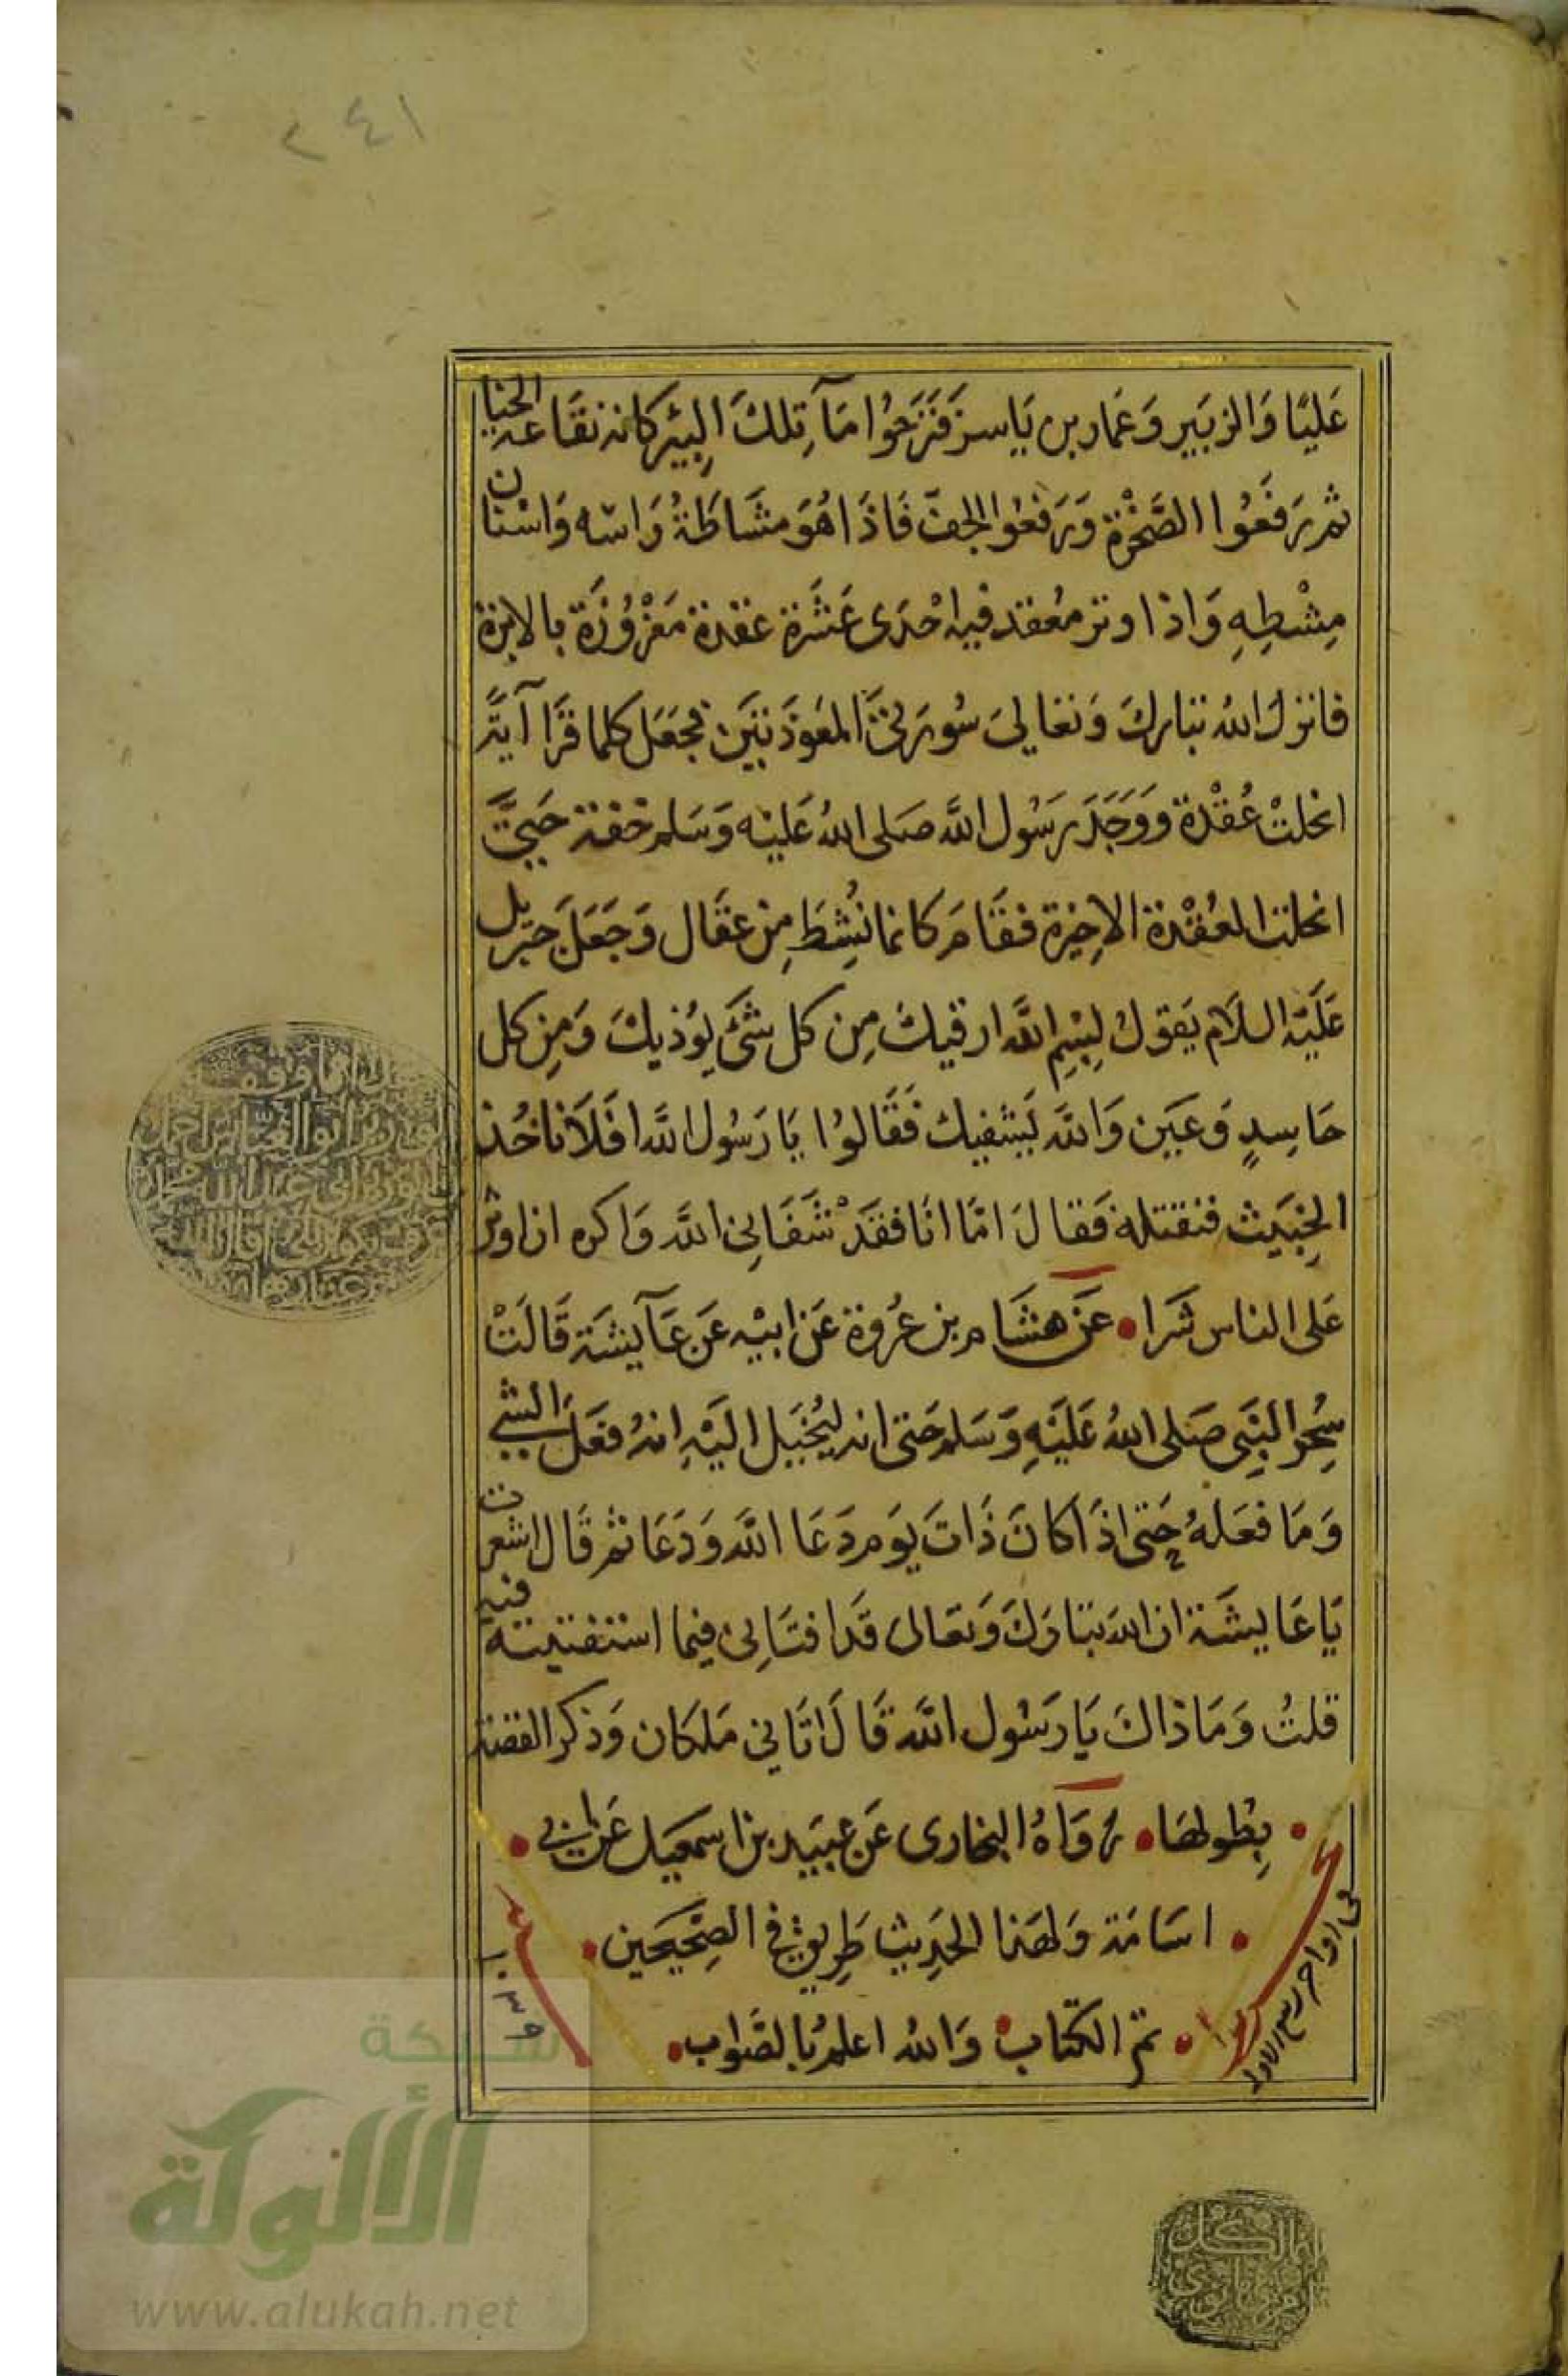 ٢٤١
عَليًا وَالزبَير وَعَمار بن يَاسر فَنَزَحُوا مَآ تِلكَ البِئر كانه نقَاعة الحنا
ثم رَفَعُوا الصَّخْرة وَرَفعُوا الجف فَاذَا هُوَ مشَاطَةُ رَاسه وَاسْنان
مِشْطِهِ وَاذا وتر معُقد فيه احْدَى عَشَرة عقدة مَغْرُوُزَة بالابرة
فانزل اللهُ تبارك وَتعَالى سُورَتى المعَوذَتيَن فجَعَل كلما قَرَا آيَة
انحلتْ عُقْدة وَوَجَدَ رَسُول الله صَلى اللهُ عَليْه وَسَلم خفة حَتى
انحلت العُقْدة الاخِيرة فقَام كانما نُشِطَ مِن عقَال وَجَعَلَ جبريل
عَلَيْه السلَام يَقولُ بِسْمِ الله ارقيك مِن كل شئ يؤذيك وَمِن كل
حَاسِدٍ وَعَين وَالله يَشفيك فَقَالوُا يَا رَسُول الله افَلَا ناخُذ
الخبَيث فنقتله فَقالَ امَّا انَا فقَدْ شَفَانِى الله وَاكره ان اوثر
عَلى الناس شَرا • عَن هشَام بن عُروة عَن ابيْه عَن عَآيشَة قَالَتْ
سُحِر النبَِى صَلى اللهُ عَلَيْهِ وَسَلم حَتى انه ليُخيَل اليَْهِ انهُ فعَلَ الشي
وَمَا فعَلهُ حَتى اذَا كانَ ذَاتَ يَوَم دَعَا الله وَدَعَا ثم قَال اشعرت
يَا عَايشَة ان الله تبَارَك وَتعَالى قَد افتَانِى فيما استفتيته فيه
قلتُ وَمَا ذاكَ يَا رَسُول الله قَالَ اتَاني مَلكان وَذكر القصة
• بِطُولهَا • رَوَاهُ البخارى عَن عبيَد بن اسمعيَل عَن ابي •
• اسَامَة وَلهَذا الحَدِيث طَرِيق في الصِحَيحَين •
• تم الكتاب وَالله اعلم بالصَواب •
في اواخر ربيع الاول
١٠٣٩
شبكة
الألوكة
www.alukah.net